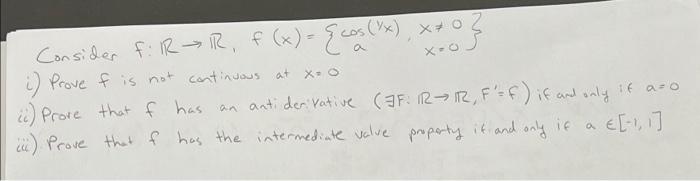 Consider f: ℝ → ℝ, f(x) = { cos(1/x), x ≠ 0
a x = 0 }
i) Prove f is not continuous at x = 0
ii) Prove that f has an antiderivative (∃F: ℝ → ℝ, F' = f) if and only if a = 0
iii) Prove that f has the intermediate value property if and only if a ∈ [-1, 1]